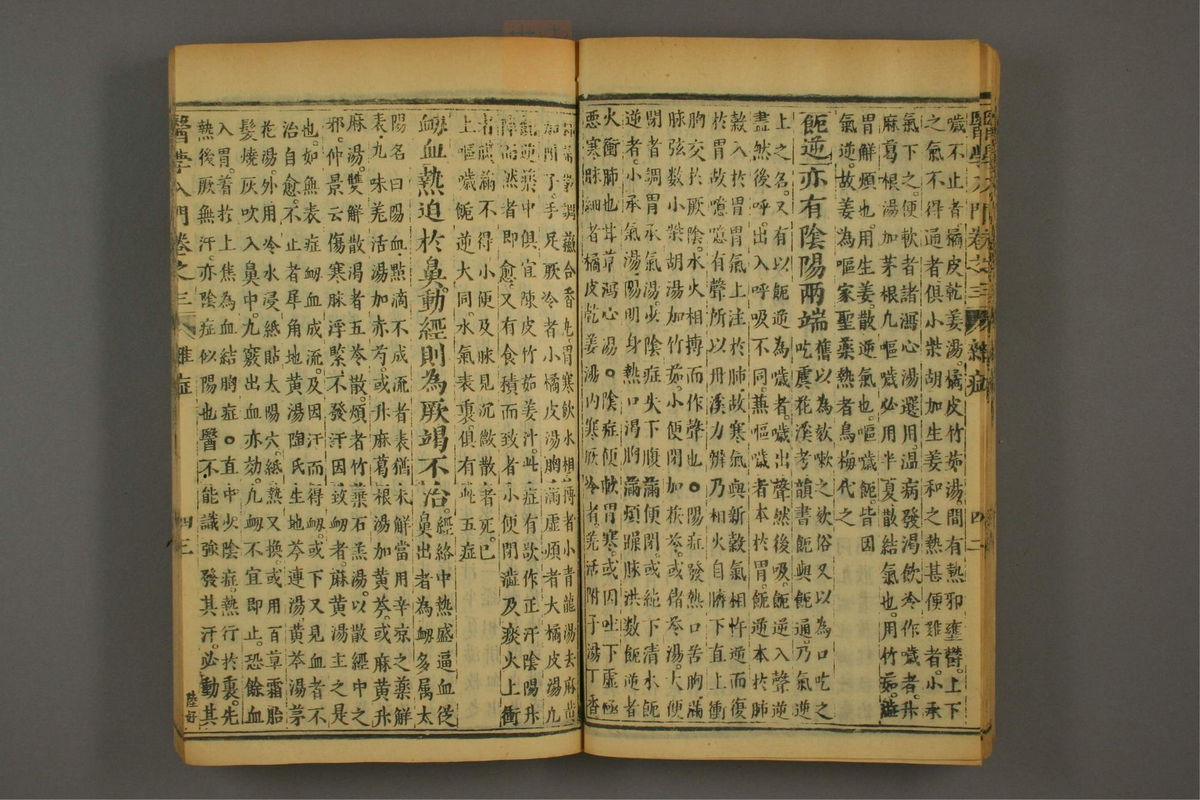 醫學入門卷之三 雜症 四二
噦不止者橘皮乾姜湯橘皮竹茹湯間有熱邪壅欝上下
之氣不得通者俱小柴胡加生姜和之熱甚便難者小承
氣下之便軟者諸瀉心湯選用温病發渴飲冷作噦者升
麻葛根湯加茅根九嘔噦必用半夏散結氣也用竹茹溢
胃解煩也用生姜散逆氣也嘔噦皆因
氣逆故姜為嘔家聖藥熱者烏梅代之
䭇逆亦有陰陽兩端舊以為欬嗽之欬俗又以為口吃之
吃虞花溪考韻書䭇與䭇通乃氣逆
上之名又有以䭇逆為噦者噦出聲然後吸䭇逆入聲逆
盡然後呼出入呼吸不同蕪嘔噦者本於胃䭇逆本於肺
穀入於胃胃氣上注於肺故寒氣與新穀氣相忤逆而復
於胃故噫噫有聲所以丹溪力辨乃相火自臍下直上衝
胸交於厥陰水火相摶而作聲也陽症發熱口苦胸滿
脉弦數小柴胡湯加竹茹小便閉加茯苓或猪苓湯大便
閉者調胃承氣湯少陰症失下腹滿便閉或純下清水䭇
逆者小承氣湯陽明身熱口渴胸滿煩躁脉洪數䭇逆者
火衝肺也甘草瀉心湯陰症便軟胃寒或因吐下虛極
悪寒脉細者橘皮乾姜湯内寒厥冷者羌活附子湯丁香
加門子手足厥冷者小橘皮湯胸滿虛煩者大橘皮湯九
䭇逆藥中俱宜陳皮竹茹姜汁此症有欲作正汗陰陽升
降㑹然者即愈又有食積而致者小便閉澁及痰火上衝
者胸滿不得小便及脉見沉微散者死已
上嘔噦䭇逆大同水氣表裏俱有此五症
衂血熱迫於鼻動經則為厥竭不治經絡中熱盛逼血從
鼻出者為衂多属太
陽名曰陽血點滴不成流者表猶未解當用辛凉之藥解
表九味羌活湯加赤芍或升麻葛根湯加黄芩或麻黄升
麻湯雙解散渴者五苓散煩者竹葉石羔湯以散經中之
邪仲景云傷寒脉浮緊不發汗因致衂者麻黄湯主之是
也如無表症衂血成流及因汗而得衂或下又見血者不
治自愈不止者犀角地黄湯陶氏生地芩連湯黄芩湯茅
花湯外用冷水浸紙貼太陽穴紙熱又換或用百草霜胎
髮燒灰吹入鼻中九竅出血亦効九衂不宜即止恐餘血
入胃着於上焦為血結胸症直中少陰症熱行於裏先
熱後厥無汗亦陰症似陽也醫不能識強發其汗必動其
醫學入門卷之三 雜症 四三
陸好